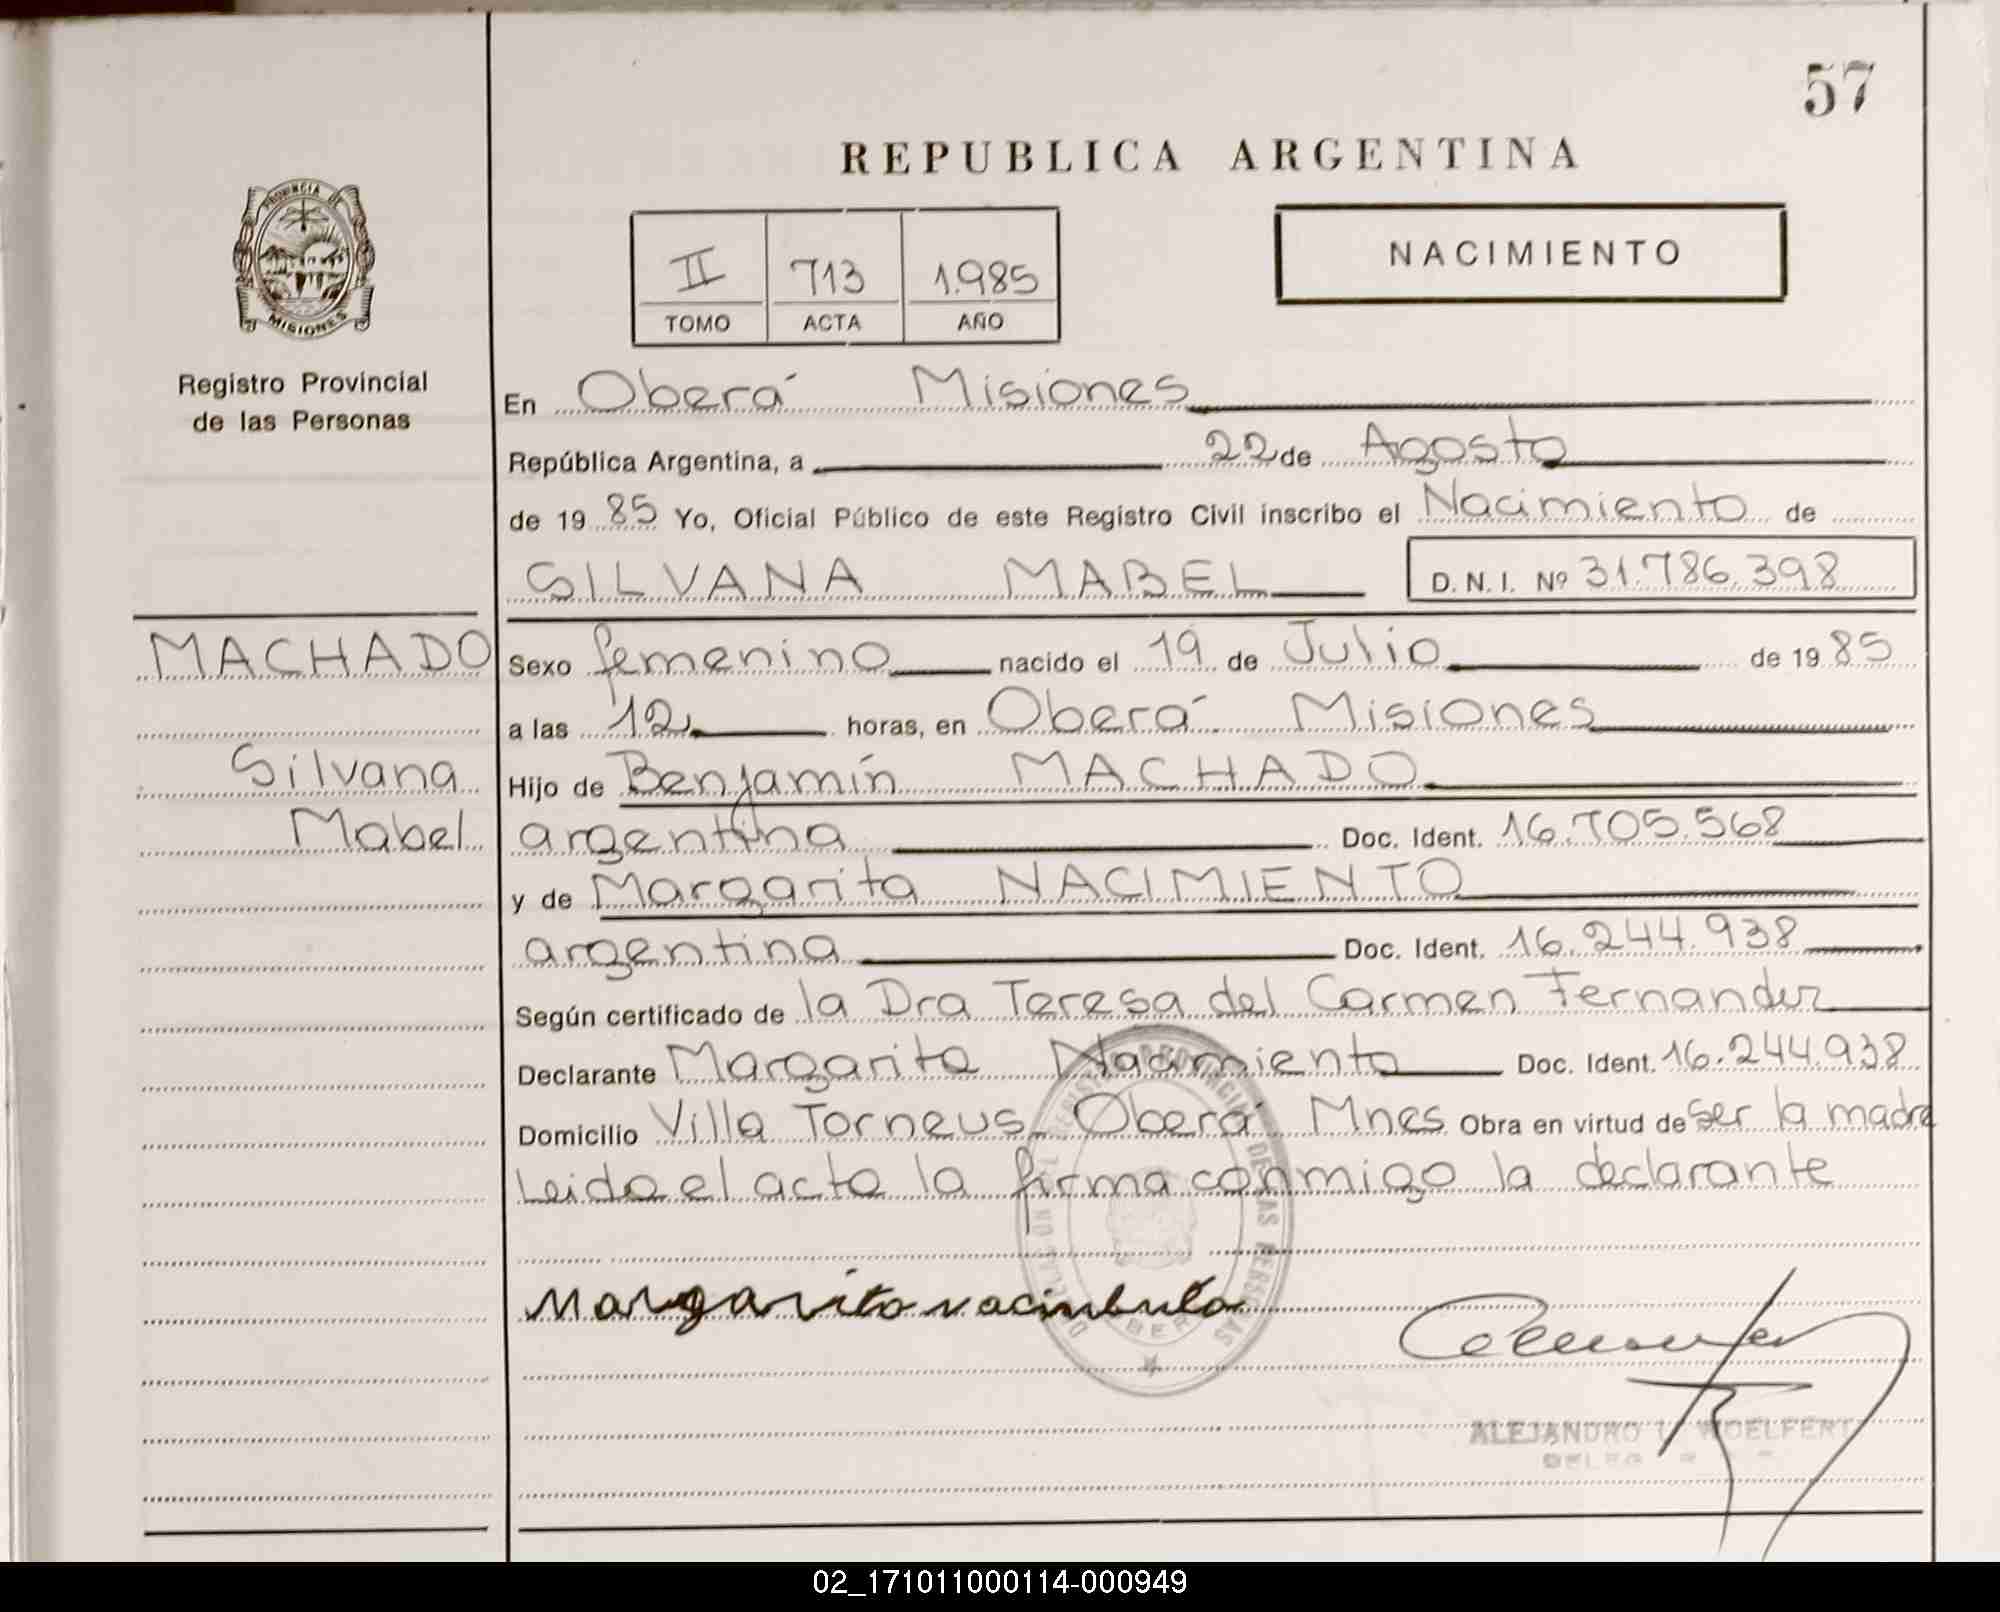 57
REPUBLICA ARGENTINA
PROVINCIA DE
MISIONES
II 713 1.985
TOMO ACTA AÑO
NACIMIENTO
Registro Provincial
de las Personas
En Oberá Misiones
República Argentina, a 22 de Agosto
de 19 85 Yo, Oficial Público de este Registro Civil inscribo el Nacimiento de
SILVANA MABEL D.N.I. Nº 31.786.398
MACHADO
Silvana
Mabel
Sexo femenino nacido el 19 de Julio de 19 85
a las 12 horas, en Oberá Misiones
Hijo de Benjamín MACHADO
argentina Doc. Ident. 16.705.568
y de Margarita NACIMIENTO
argentina Doc. Ident. 16.244.938
Según certificado de la Dra Teresa del Carmen Fernandez
Declarante Margarita Nacimiento Doc. Ident. 16.244.938
Domicilio Villa Torneus Oberá Mnes Obra en virtud de ser la madre
Leida el acta la firma conmigo la declarante
Margarita
ALEJANDRO WOELFERT
02_171011000114-000949